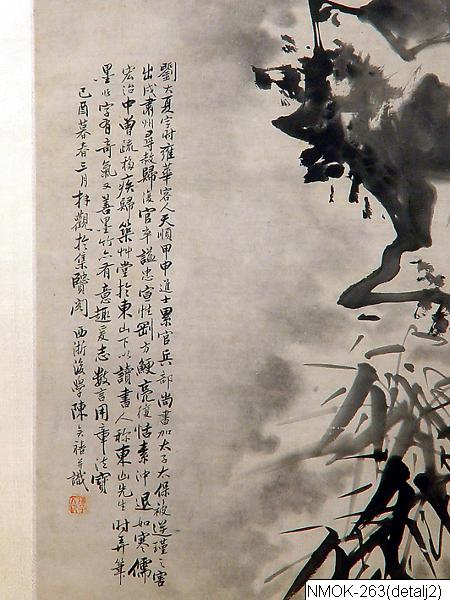 劉大夏字時雍華容人天順甲申進士累官兵部尚書加太子太保被逆瑾之害
出戍肅州尋赦歸復官卒謚忠宣性剛方鯁亮復恬素沖退如寒儒
宏治中曾疏移疾歸築艸堂於東山下以讀書人稱東山先生時弄筆
墨作字有奇氣又善墨竹亦有意趣爰志數言用章法寶
己酉暮春三月拜觀於集賢閣 西浙後學陳 識
NMOK-263(detalj2)